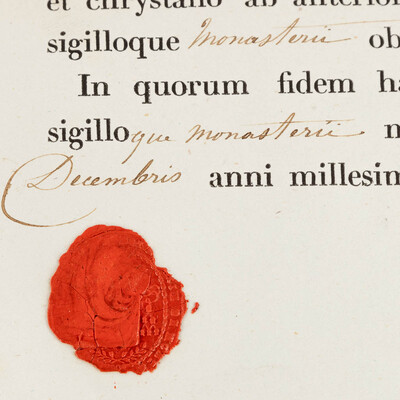 et chrystallo ab anterior
sigilloque Monasterii ob
In quorum fidem ha
sigilloque Monasterii n
Decembris anni millesim